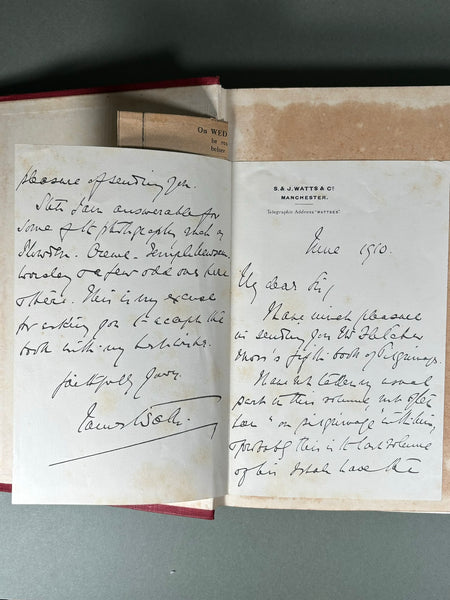 On WED
be rea
before
S. & J. WATTS & Co.
MANCHESTER.
Telegraphic Address "WATTSES"
June 1910.
My dear Sir,
I have much pleasure
in sending you Mr Fletcher
Moss's fifth book of Pilgrimages.
I have not taken my usual
part in this volume, not often
been "on pilgrimage" with him,
& probably this is the last volume
of his I shall have the
pleasure of sending you.
I am answerable for
some of the photographs such as
Crewe. Temple Newsam.
Worsley & a few odd ones here
& there. This is my excuse
for asking you to accept the
book with my best wishes.
faithfully yours
James Watts.